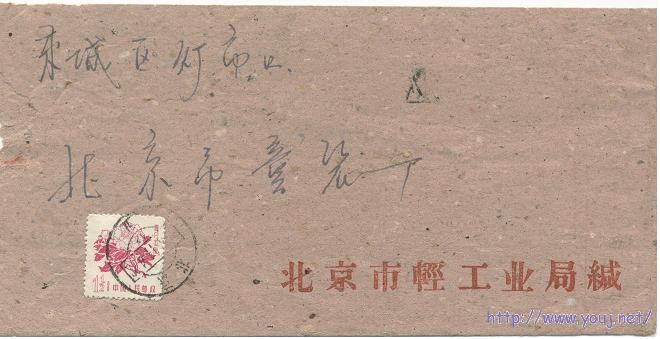 东城区灯市口
北京市童装厂
1½分 中国人民邮政
北京市輕工业局緘
http://www.youj.net/